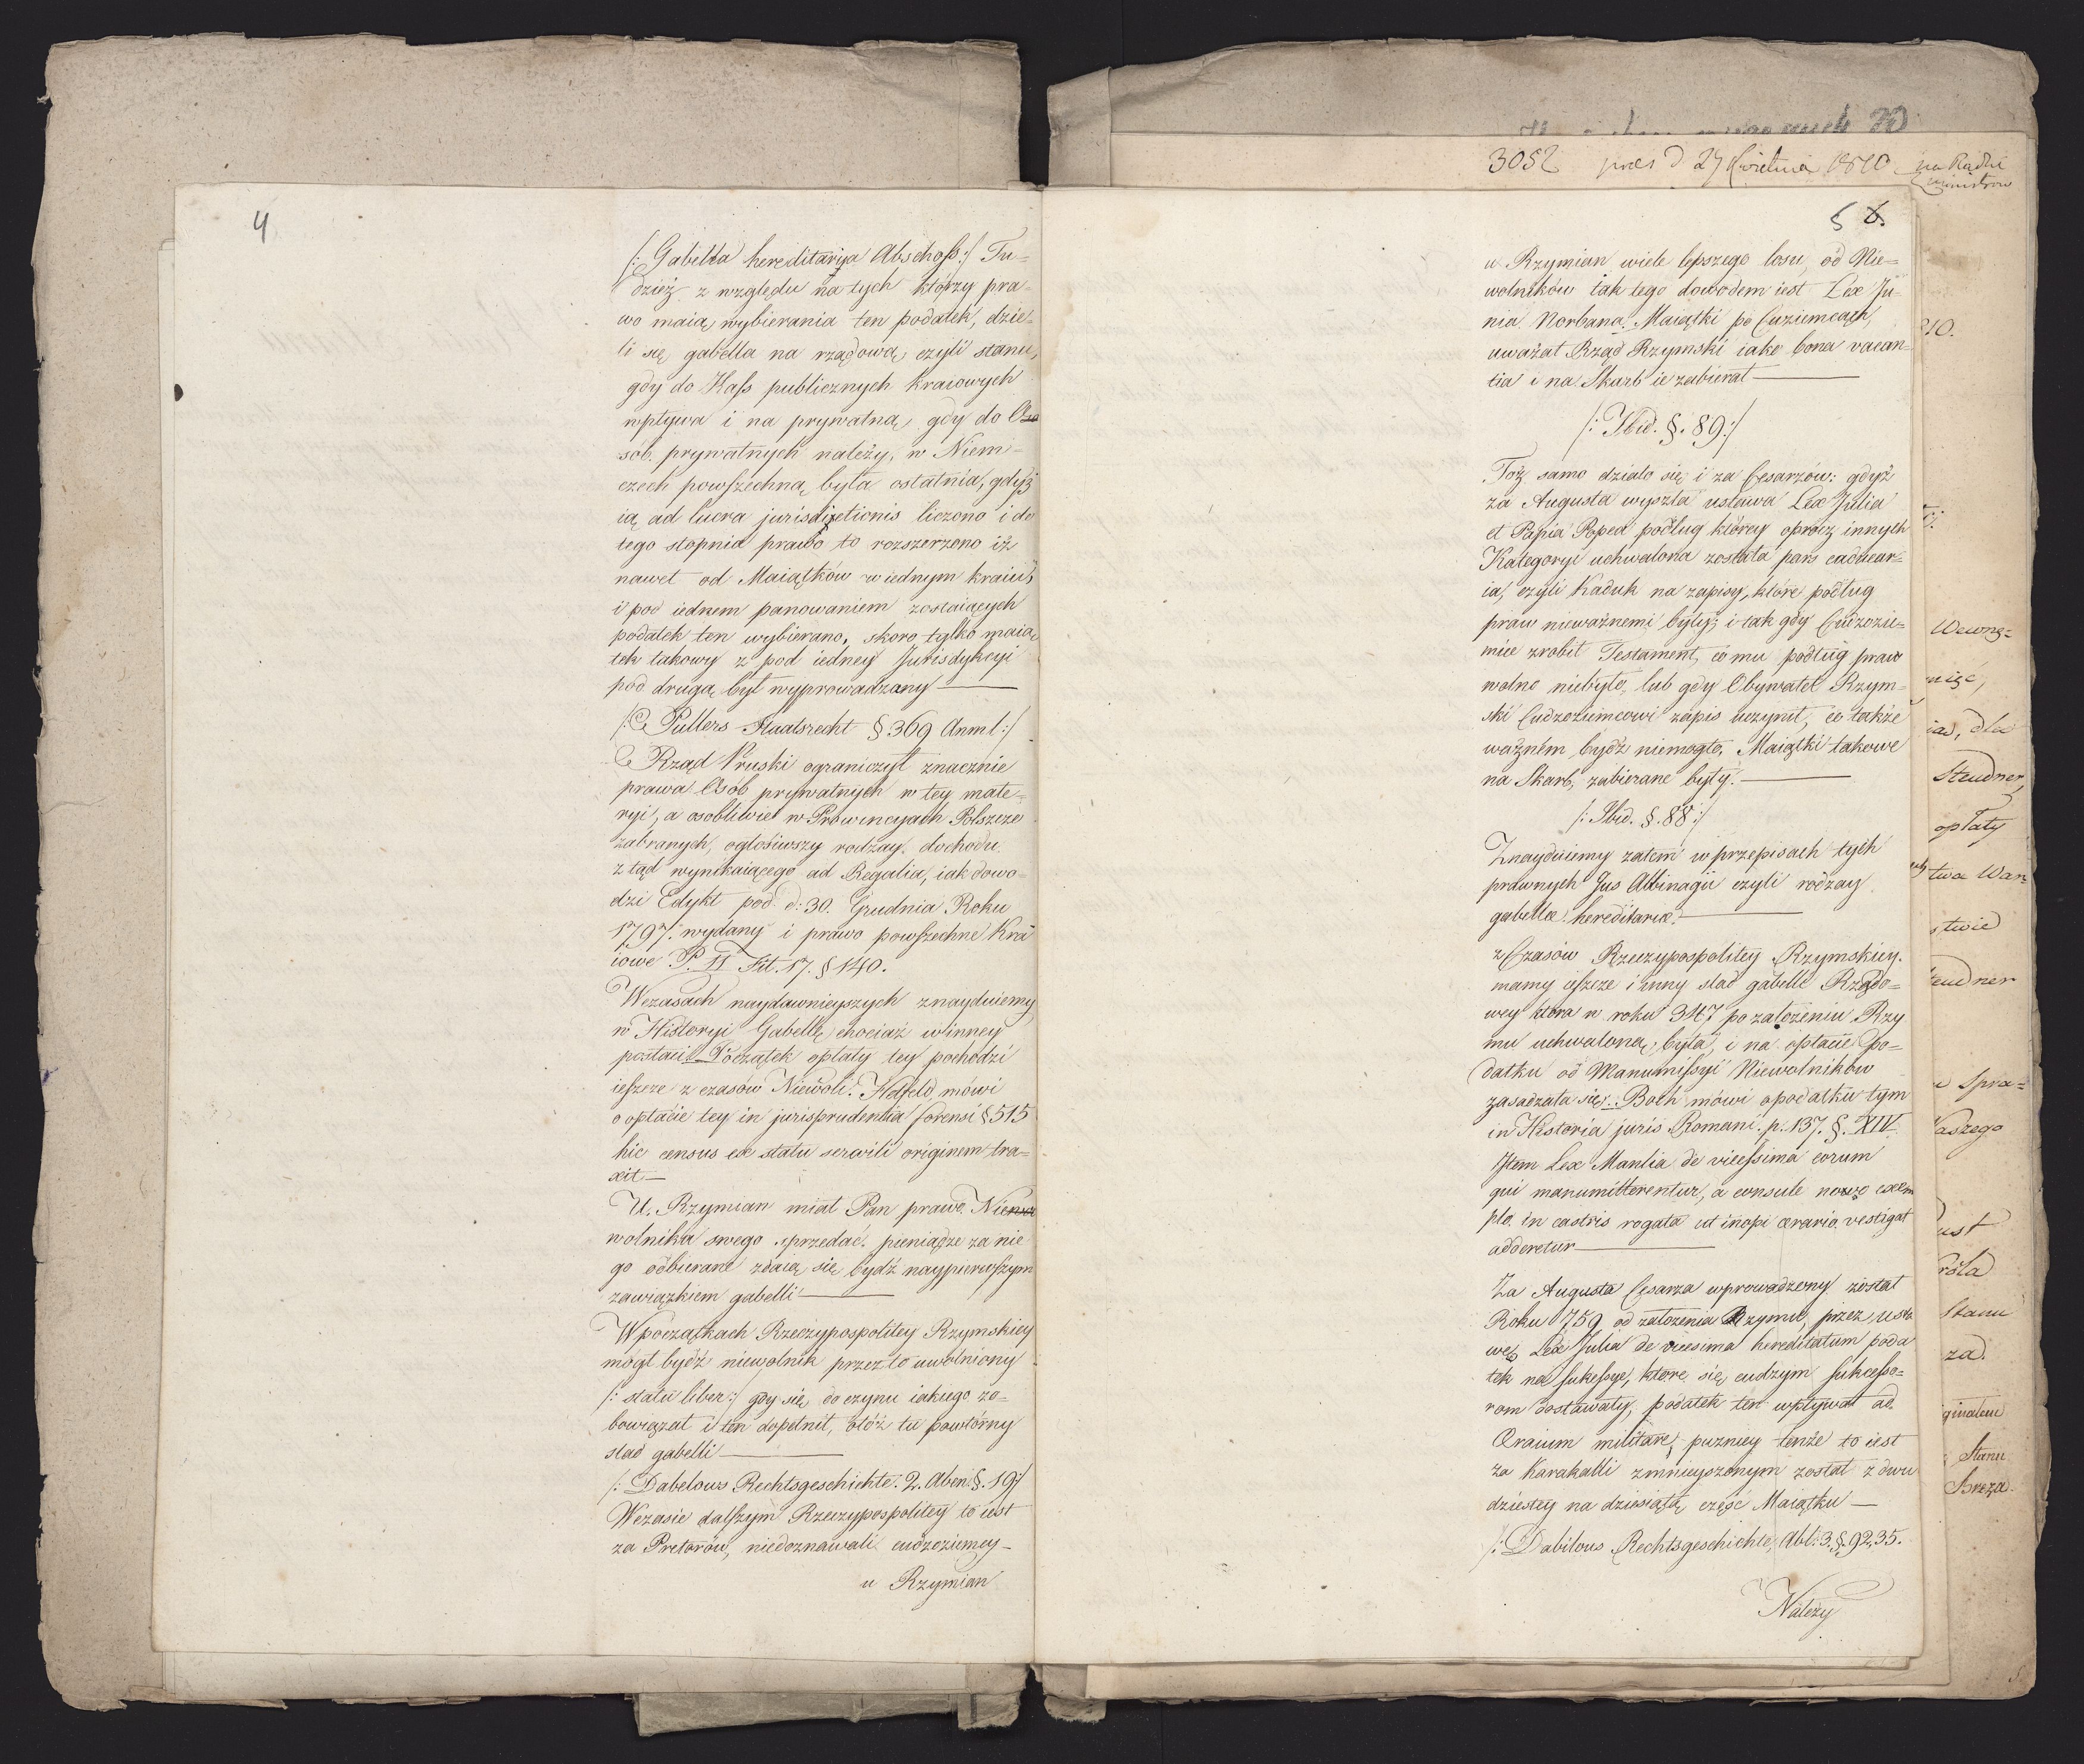 4
/: Gabella hereditarya Abschoss :/ Tu=
dzież z względu na tych którzy pra=
wo maią wybierania ten podatek, dzie=
li się gabella na rządową czyli stanu,
gdy do Kass publicznych kraiowych
wpływa i na prywatną gdy do O
sób prywatnych należy, w Niem=
czech powszechną była ostatnia, gdyż
ią ad lucra jurisdictionis liczono i do
tego stopnia prawo to rozszerzono iż
nawet od Maiątków w iednym kraiu
i pod iednem panowaniem zostaiących
podatek ten wybierano, skoro tylko maią
tek takowy z pod iedney Jurisdykcyi
pod drugą był wyprowadzany —
/: Pütters Staatsrecht § 369 Anm 1 :/
Rząd Pruski ograniczył znacznie
prawa Osób prywatnych w tey mate=
ryi, a osobliwie w Prowincyach Polszcze
zabranych, ogłosiwszy rodzay dochodu
ztąd wynikaiącego ad Regalia, iak dowo=
dzi Edykt pod d: 30. Grudnia Roku
1797. wydany i prawo powszechne Kra
iowe P. II Tit. 17. § 140.
Wczasach naydawnieyszych znayduiemy
w Historyi Gabellę chociaż winney
postaci. Początek opłaty tey pochodzi
ieszcze z czasów Niewoli. Helfeld mówi
o opłacie tey in jurisprudentia forensi § 515
hic census ex statu servili originem tra=
xit —
U Rzymian miał Pan prawo Nie
wolnika swego sprzedać, pieniądze za nie
go odbierane zdaią się bydź naypierwszym
zawiązkiem gabelli —
Wpoczątkach Rzeczypospolitey Rzymskiey
mógł bydź niewolnik przez to uwolniony
/: statu liber :/ gdy się do czynu iakiego zo=
bowiązał i ten dopełnił, otóż tu powtórny
slad gabelli —
/: Dabelows Rechtsgeschichte. 2. Aben §. 19 :/
Wczasie dalszym Rzeczypospolitey to iest
za Pretorów, niedoznawali cudzoziemcy
u Rzymian
3052 pres d 27 Kwietnia 1810 na Radzie
Ministrow
5 6.
u Rzymian wiele lepszego losu, od Nie=
wolników iak tego dowodem iest Lex Ju=
nia Norbana. Maiątki po Cuziemcach,
uważał Rząd Rzymski iako bona vacan=
tia i na Skarb ie zabierał —
/: Ibid. §. 89 :/
Toż samo działo się i za Cesarzów: gdyż
za Augusta wyszła ustawa Lex Julia
et Papia Popea podług którey oprócz innych
Kategoryi uchwalona została pars caducar=
ia, czyli Kaduk na zapisy, które podług
praw nieważnemi były; i tak gdy Cudzozie=
miec zrobił Testament, co mu podług praw
wolno niebyło, lub gdy Obywatel Rzym=
ski Cudzoziemcowi zapis uczynił, co także
ważném bydź niemogło, Maiątki takowe
na Skarb zabierane były. —
/: Ibid. §. 88 :/
Znayduiemy zatem w przepisach tych
prawnych Jus Albinagii czyli rodzay
gabellæ hereditariæ —
z Czasów Rzeczypospolitey Rzymskiey
mamy ieszcze i inny slad gabelli Rządo=
wey która w roku 347 po założeniu Rzy
mu uchwaloną była, i na opłacie Po=
datku od Manumissyi Niewolników
zasadzała się. Bach mówi o podatku tym
in Historia juris Romani. p. 137. §. XIV.
Item Lex Manlia de vicessima eorum
qui manumitterentur, a consule novo exem
plo in castris rogata ut inopi ærario vestigat
adderetur —
Za Augusta Cesarza wprowadzony został
Roku 759 od założenia Rzymu, przez usta
wę Lex Julia de vicesima hereditatum poda
tek na sukcessye, które się cudzym sukcesso=
rom dostawały, podatek ten wpływał ad
Ærarium militare, puzniey tenże to iest
za Karakalli zmnieyszonym został z dwu
dziestey na dziesiątą część Maiątku —
/: Dabilows Rechtsgeschichte, Abt. 3. §. 92. 35.
Należy
810.
Wewnę=
nięć,
iad, dla
Steudner,
opłaty
twa War=
stwie
teudner
u Spra=
aszego
ust
róla
Stanu
za.
ginałem
Stanu
Breza.